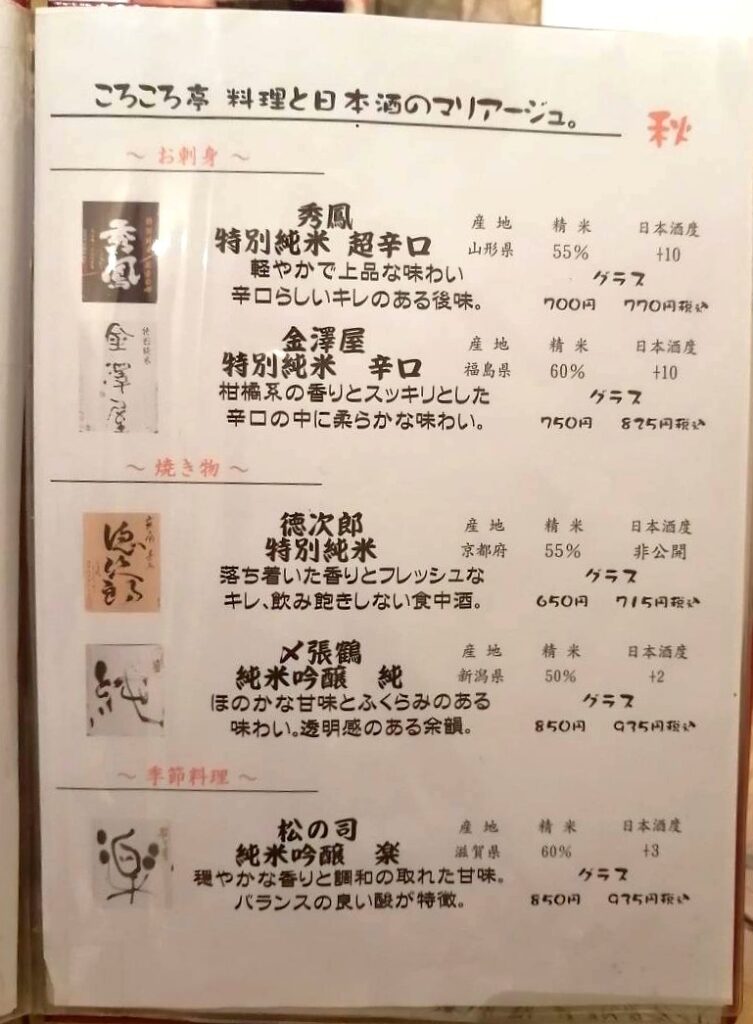 ころころ亭 料理と日本酒のマリアージュ。
秋
～ お刺身 ～
秀鳳
特別純米 超辛口
産地 精米 日本酒度
山形県 55% +10
軽やかで上品な味わい
辛口らしいキレのある後味。
グラス
700円 770円税込
金澤屋
特別純米 辛口
産地 精米 日本酒度
福島県 60% +10
柑橘系の香りとスッキリとした
辛口の中に柔らかな味わい。
グラス
750円 825円税込
～ 焼き物 ～
徳次郎
特別純米
産地 精米 日本酒度
京都府 55% 非公開
落ち着いた香りとフレッシュな
キレ、飲み飽きしない食中酒。
グラス
650円 715円税込
〆張鶴
純米吟醸 純
産地 精米 日本酒度
新潟県 50% +2
ほのかな甘味とふくらみのある
味わい。透明感のある余韻。
グラス
850円 935円税込
～ 季節料理 ～
松の司
純米吟醸 楽
産地 精米 日本酒度
滋賀県 60% +3
穏やかな香りと調和の取れた甘味。
バランスの良い酸が特徴。
グラス
850円 935円税込
秀鳳
特別純米
金澤屋
純
楽